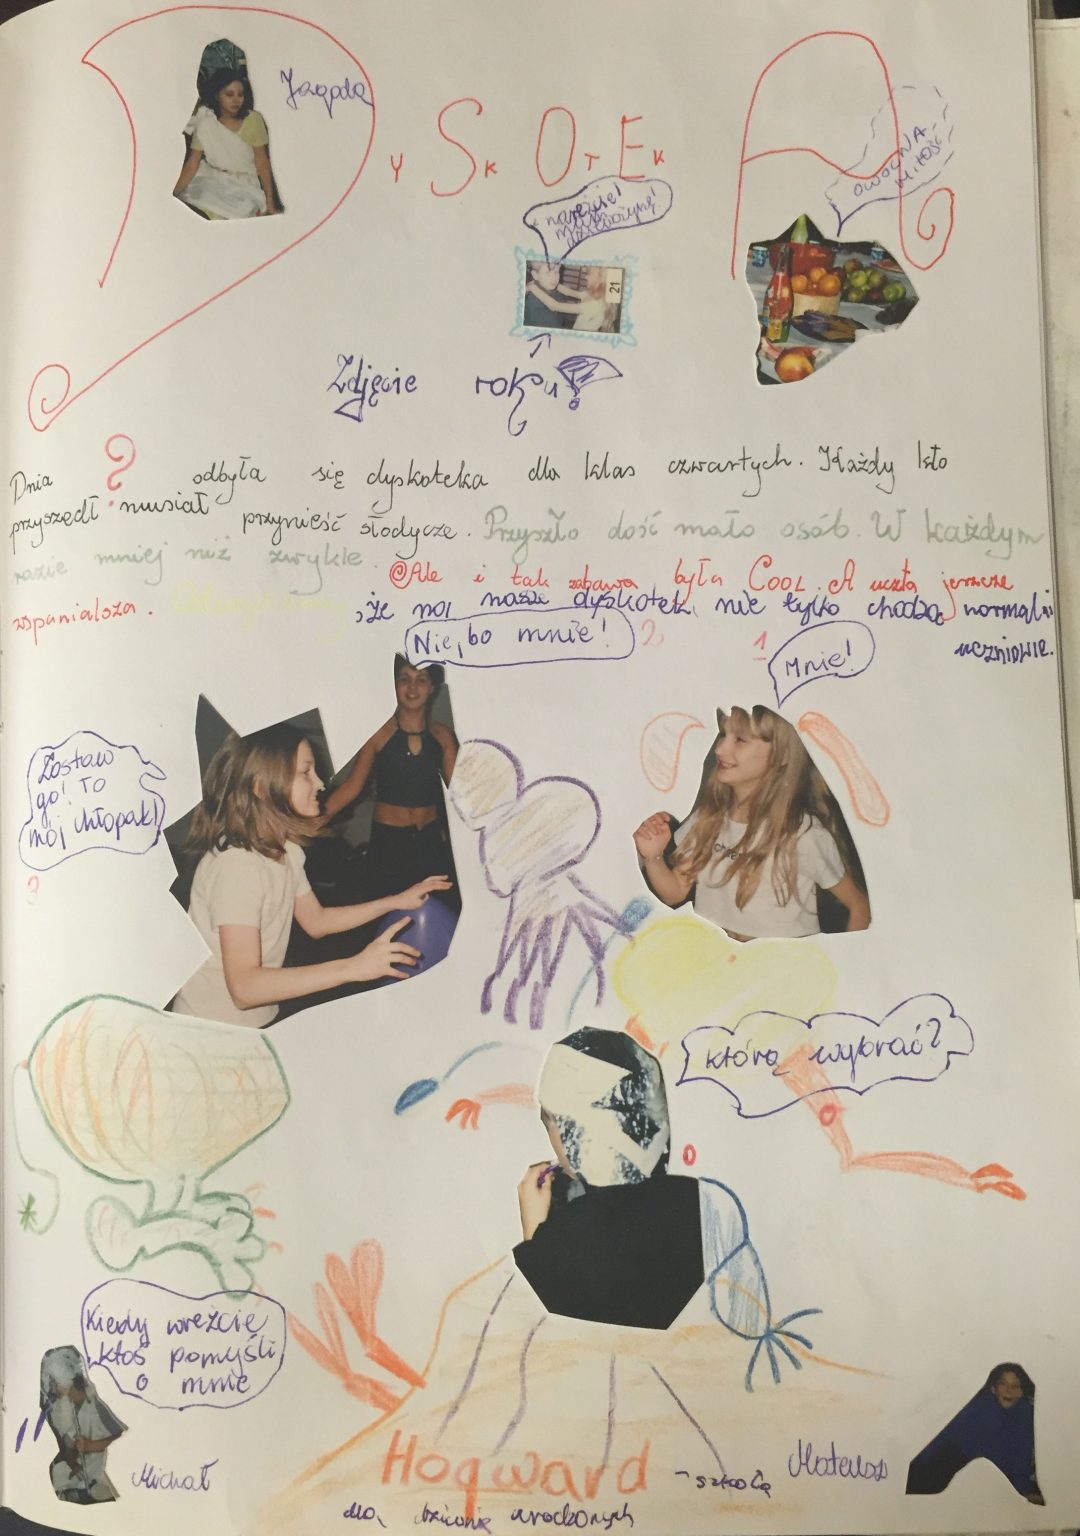 Jagoda
DYSKOTEKA
OWOCNA MIŁOŚĆ
nareście! mam dziewczynę!
21
Zdjęcie roku!
Dnia ? odbyła się dyskoteka dla klas czwartych. Każdy kto
przyszedł musiał przynieść słodycze. Przyszło dość mało osób. W każdym
razie mniej niż zwykle. Ale i tak zabawa była COOL. A uczta jeszcze
wspanialsza. , że na nasze dyskoteki nie tylko chodzą normalni
uczniowie.
Nie, bo mnie! 2
1 Mnie!
Zostaw
go! To
mój chłopak!
3
którą wybrać?
Kiedy wreźcie
ktoś pomyśli
o mnie
Michał
Mateusz
Hogward - szkoła
dla dziwnie urodzonych